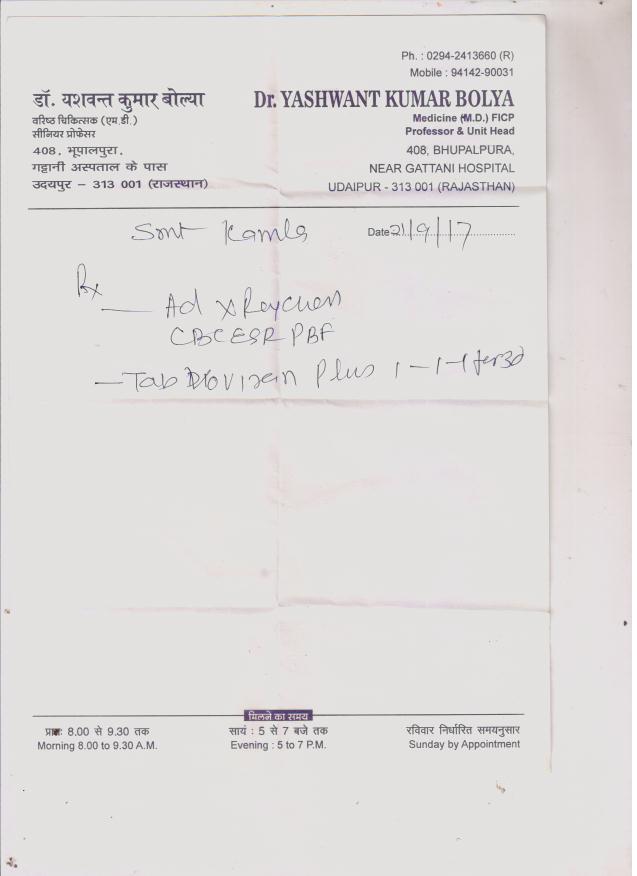 Ph. : 0294-2413660 (R)
Mobile : 94142-90031
डॉ. यशवन्त कुमार बोल्या
वरिष्ठ चिकित्सक (एम.डी.)
सीनियर प्रोफेसर
408, भूपालपुरा,
गट्टानी अस्पताल के पास
उदयपुर – 313 001 (राजस्थान)
Dr. YASHWANT KUMAR BOLYA
Medicine (M.D.) FICP
Professor & Unit Head
408, BHUPALPURA,
NEAR GATTANI HOSPITAL
UDAIPUR - 313 001 (RAJASTHAN)
Smt Kamla
Date 21/9/17
Rx
Ad X Ray Chest
CBC ESR PBF
Tab Plus 1-1-1 for 3d
मिलने का समय
प्रातः 8.00 से 9.30 तक
Morning 8.00 to 9.30 A.M.
सायं : 5 से 7 बजे तक
Evening : 5 to 7 P.M.
रविवार निर्धारित समयनुसार
Sunday by Appointment